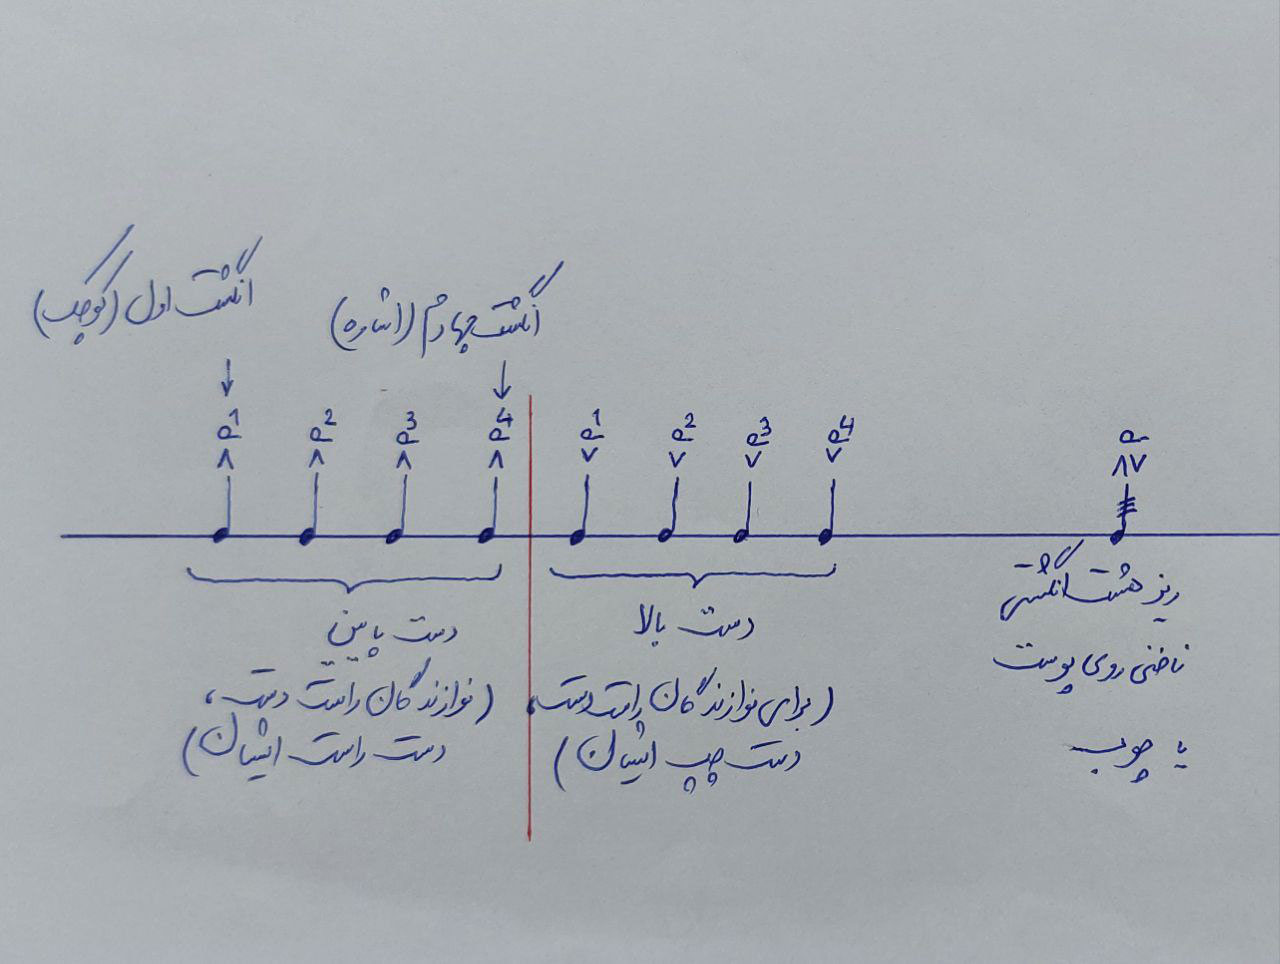 انگشت اول (کوچک)
انگشت چهارم (اشاره)
1 2 3 4 1 2 3 4
دست پایین
(نوازندگان راست دست،
دست راست ایشان)
دست بالا
(برای نوازندگان راست دست،
دست چپ ایشان)
ریز هشت انگشتی
ناخنی روی پوست
یا چوب